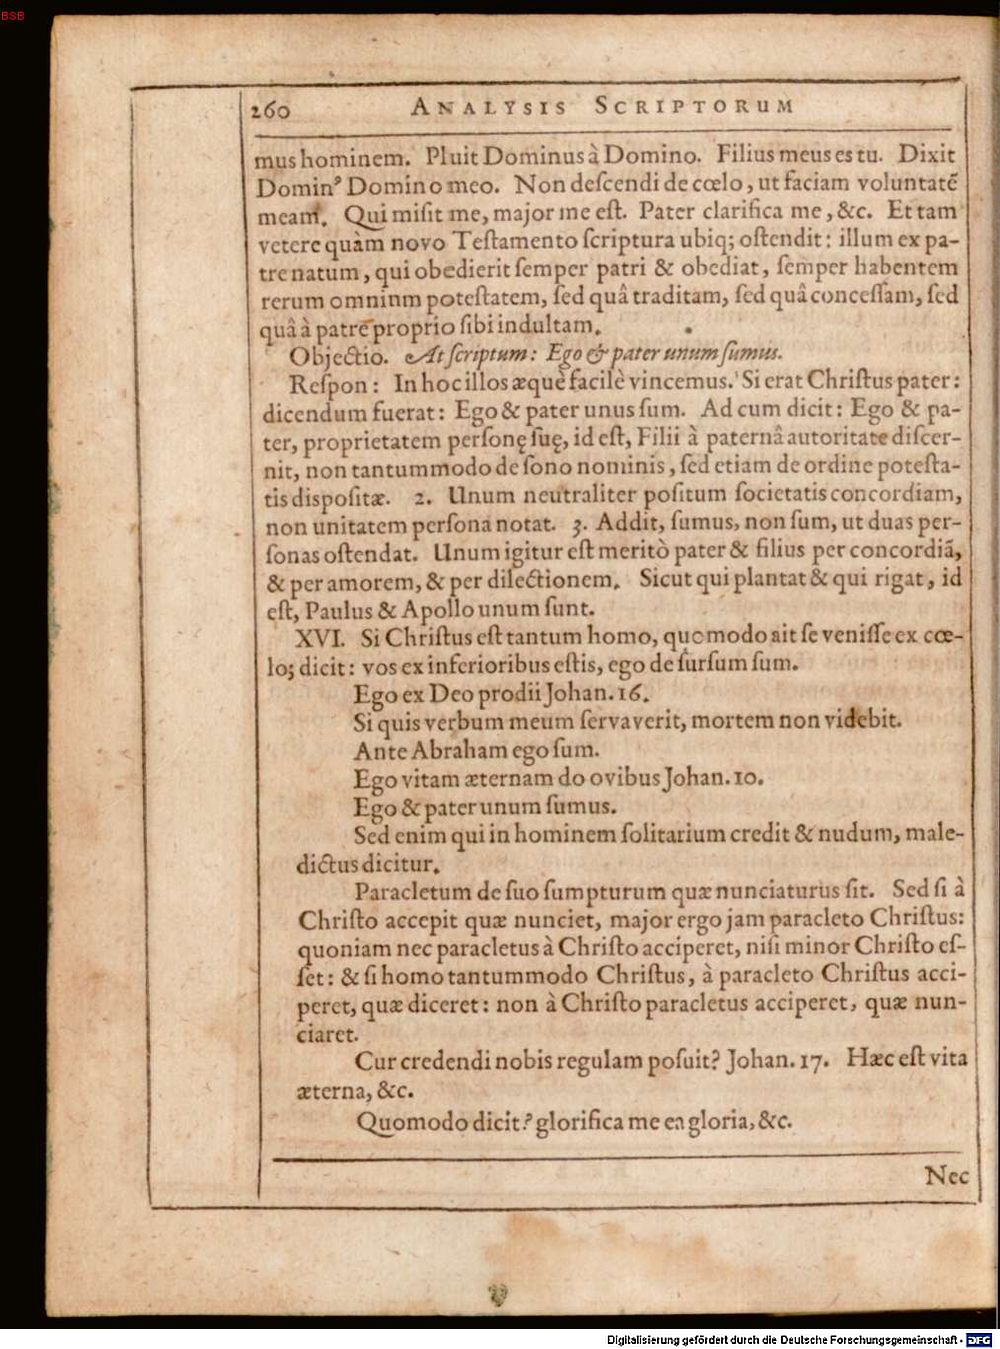 BSB
260 ANALYSIS SCRIPTORUM
mus hominem. Pluit Dominus à Domino. Filius meus es tu. Dixit
Dominꝰ Domino meo. Non descendi de cœlo, ut faciam voluntatẽ
meam. Qui misit me, major me est. Pater clarifica me, &c. Et tam
vetere quàm novo Testamento scriptura ubiq; ostendit: illum ex pa-
tre natum, qui obedierit semper patri & obediat, semper habentem
rerum omninm potestatem, sed quâ traditam, sed quâ concessam, sed
quâ à patre proprio sibi indultam.
Objectio. At scriptum: Ego & pater unum sumus.
Respon: In hoc illos æquè facilè vincemus. Si erat Christus pater:
dicendum fuerat: Ego & pater unus sum. Ad cum dicit: Ego & pa-
ter, proprietatem personę suę, id est, Filii à paternâ autoritate discer-
nit, non tantummodo de sono nominis, sed etiam de ordine potesta-
tis dispositæ. 2. Unum neutraliter positum societatis concordiam,
non unitatem persona notat. 3. Addit, sumus, non sum, ut duas per-
sonas ostendat. Unum igitur est meritò pater & filius per concordiã,
& per amorem, & per dilectionem. Sicut qui plantat & qui rigat, id
est, Paulus & Apollo unum sunt.
XVI. Si Christus est tantum homo, quomodo ait se venisse ex cœ-
lo; dicit: vos ex inferioribus estis, ego de sursum sum.
Ego ex Deo prodii Johan. 16.
Si quis verbum meum servaverit, mortem non videbit.
Ante Abraham ego sum.
Ego vitam æternam do ovibus Johan. 10.
Ego & pater unum sumus.
Sed enim qui in hominem solitarium credit & nudum, male-
dictus dicitur.
Paracletum de suo sumpturum quæ nunciaturus sit. Sed si à
Christo accepit quæ nunciet, major ergo jam paracleto Christus:
quoniam nec paracletus à Christo acciperet, nisi minor Christo es-
set: & si homo tantummodo Christus, à paracleto Christus acci-
peret, quæ diceret: non à Christo paracletus acciperet, quæ nun-
ciaret.
Cur credendi nobis regulam posuit? Johan. 17. Hæc est vita
æterna, &c.
Quomodo dicit? glorifica me ea gloria, &c.
Nec
Digitalisierung gefördert durch die Deutsche Forschungsgemeinschaft - DFG